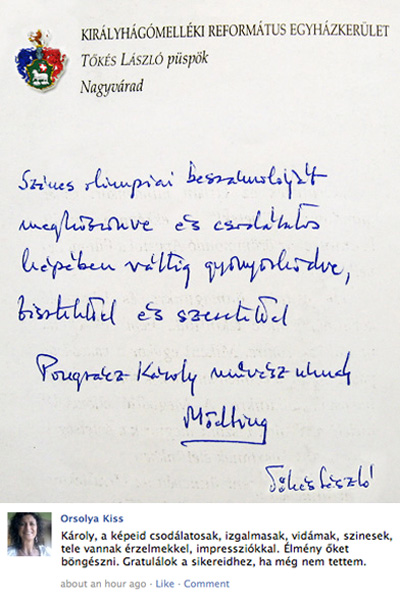 KIRÁLYHÁGÓMELLÉKI REFORMÁTUS EGYHÁZKERÜLET
TŐKÉS LÁSZLÓ püspök
Nagyvárad
Színes olimpiai beszámolóját
megköszönve és csodálatos
képében váltig gyönyörködve,
tisztelettel és szeretettel
Pongrácz Károly művész úrnak
Mödling
Tőkés László
Orsolya Kiss
Károly, a képeid csodálatosak, izgalmasak, vidámak, szinesek,
tele vannak érzelmekkel, impressziókkal. Élmény őket
böngészni. Gratulálok a sikereidhez, ha még nem tettem.
about an hour ago · Like · Comment